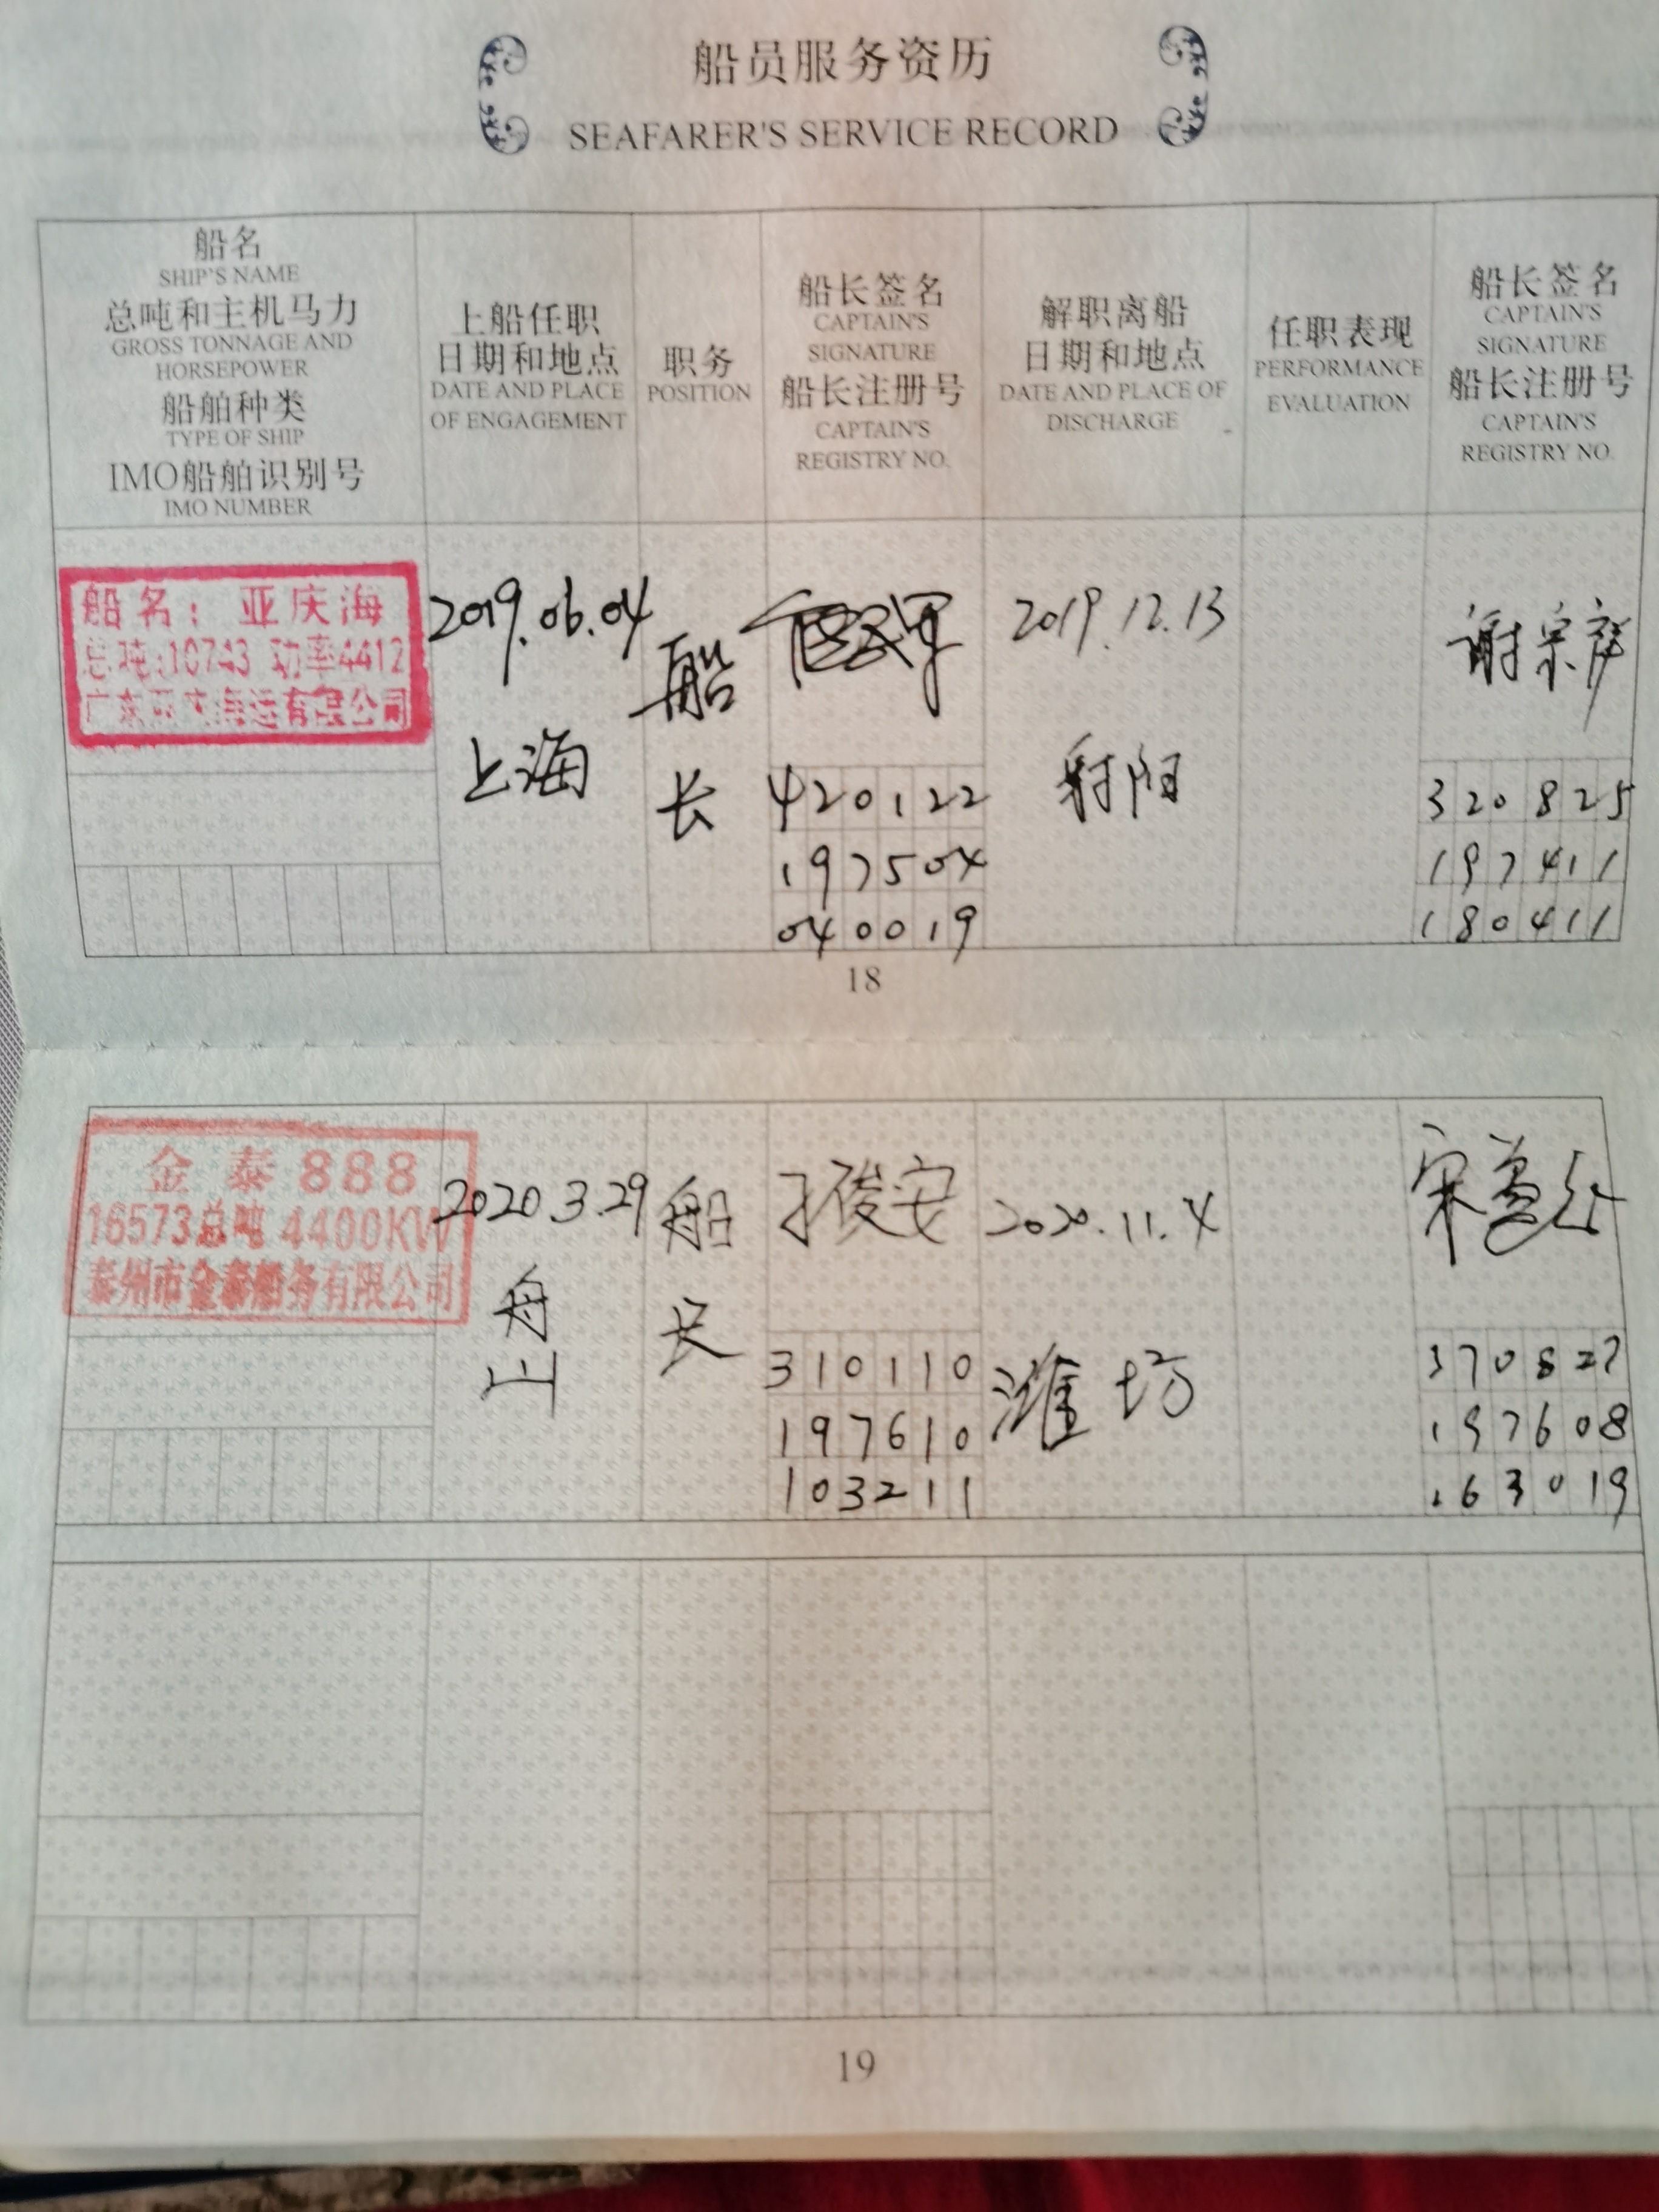 船员服务资历
SEAFARER'S SERVICE RECORD
船名
SHIP'S NAME
总吨和主机马力
GROSS TONNAGE AND
HORSEPOWER
船舶种类
TYPE OF SHIP
IMO船舶识别号
IMO NUMBER
上船任职
日期和地点
DATE AND PLACE
OF ENGAGEMENT
职务
POSITION
船长签名
CAPTAIN'S
SIGNATURE
船长注册号
CAPTAIN'S
REGISTRY NO.
解职离船
日期和地点
DATE AND PLACE OF
DISCHARGE
任职表现
PERFORMANCE
EVALUATION
船长签名
CAPTAIN'S
SIGNATURE
船长注册号
CAPTAIN'S
REGISTRY NO.
船名：亚庆海
总吨:10743 功率4412
广东亚庆海运有限公司
2019.06.04
上海
船
长
420122
197504
040019
2019.12.13
射阳
谢宗彦
320825
197411
180411
18
金泰888
16573总吨 4400KW
泰州市金泰船务有限公司
2020.3.29
舟
山
船
长
俊安
310110
197610
103211
2020.11.4
潍坊
宋
370827
197608
163019
19